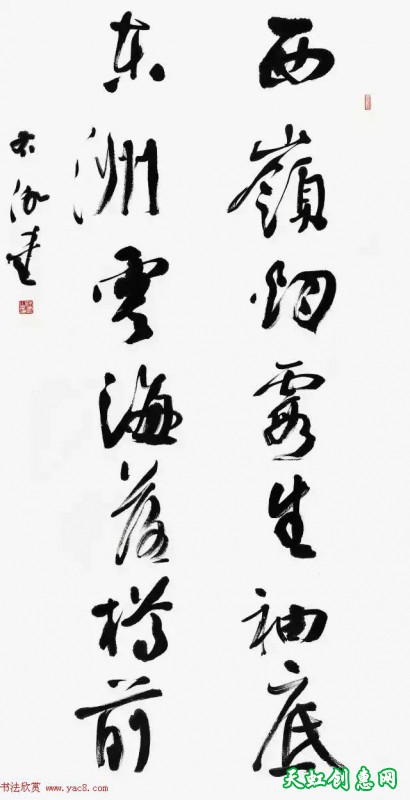 西嶺烟霞生袖底
东洲雲海落樽前
书法欣赏 www.yac8.com
天虹创惠网